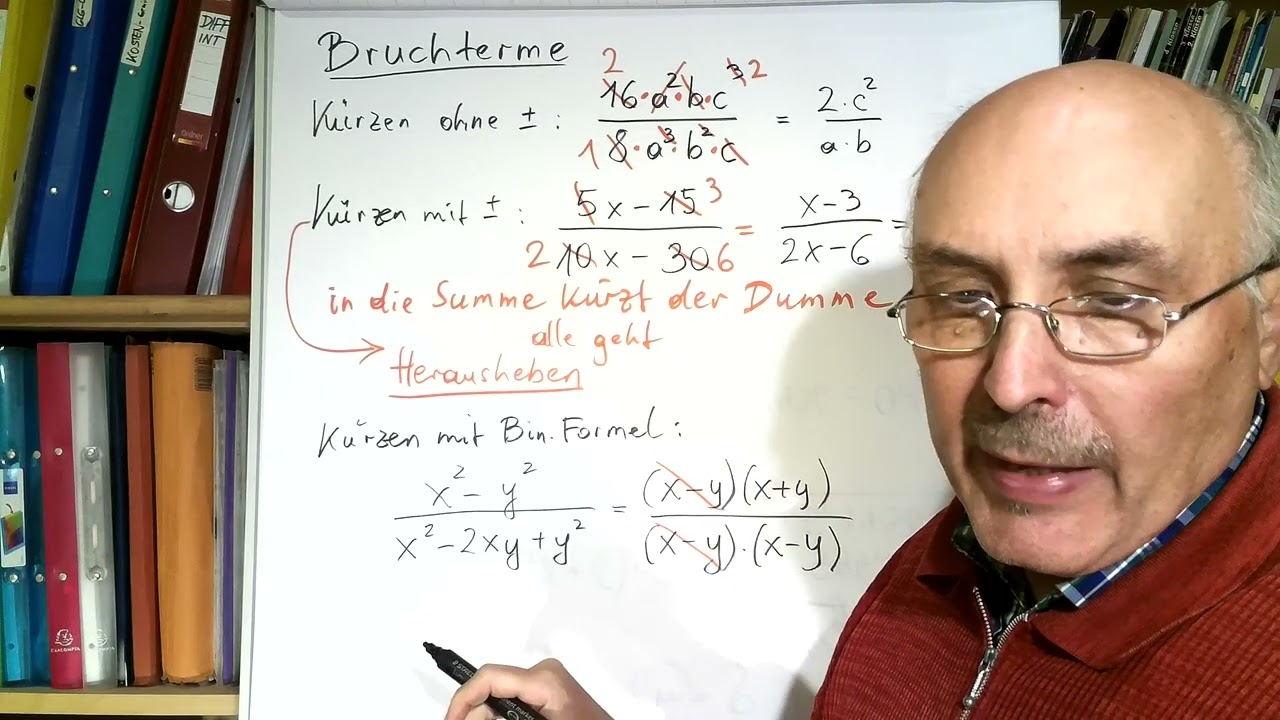 Bruchterme
Kürzen ohne ±: 2 16·a²·b·c³ 2 / 1 8·a³·b²·c = 2·c² / a·b
Kürzen mit ±: 5x - 15 3 / 2 10x - 30 6 = x-3 / 2x-6 =
in die Summe kürzt der Dumme
alle geht
Herausheben
Kürzen mit Bin. Formel:
x² - y² / x² - 2xy + y² = (x-y)(x+y) / (x-y)·(x-y)
DIFF
INT
KOSTEN-